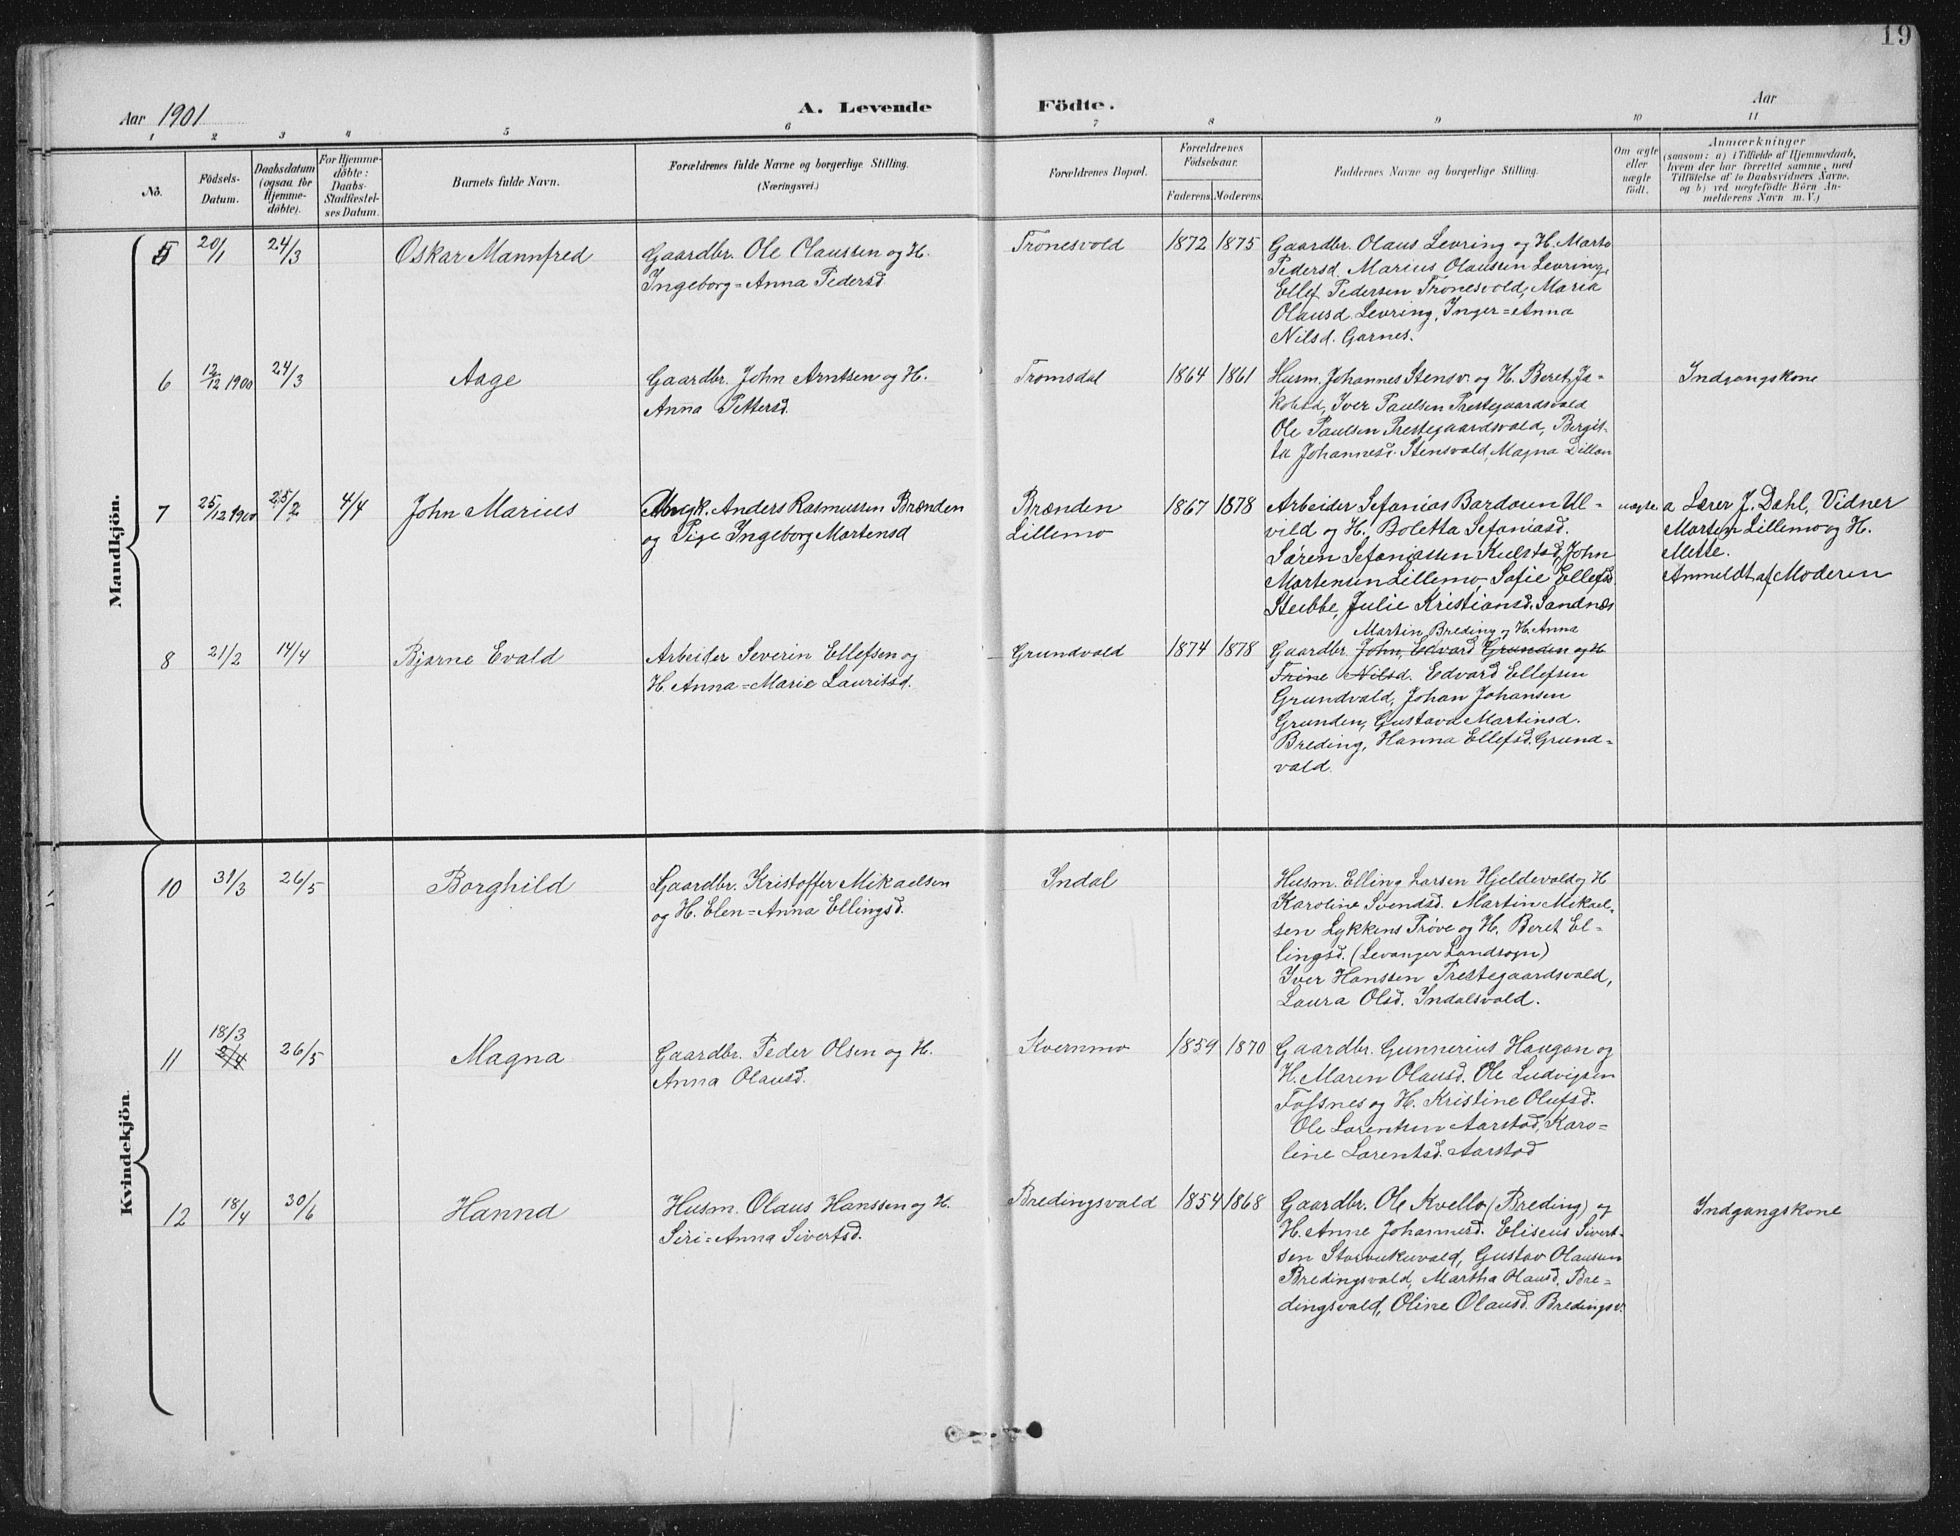 19
Aar 1901
A. Levende
Födte.
Aar
1 2 3 4 5 6 7 8 9 10 11
No.
Födsels-
Datum.
Daabsdatum
(ogsaa for
Hjemme-
døbte).
For Hjemme-
döbte:
Daabs-
Stadfæstel-
ses Datum.
Barnets fulde Navn.
Forældrenes fulde Navne og borgerlige Stilling.
(Næringsvei.)
Forældrenes Bopæl.
Forældrenes
Födselsaar.
Faderens. Moderens.
Faddernes Navne og borgerlige Stilling.
Om ægte
eller
uægte
födt.
Anmærkninger
(saasom: a) i Tilfælde af Hjemmedaab,
hvem der har forrettet samme, med
Tilföielse af to Daabsvidners Navne.
og b) ved uægtefödte Börn An-
melderens Navn m. V.)
Mandkjön.
5 20/1 24/3
Oskar Mannfred
Gaardbr. Ole Olaussen og H.
Ingeborg=Anna Pedersd.
Tronesvold
1872 1875
Gaardbr. Olaus Levring og H. Marta
Pedersd. Marius Olaussen Levring,
Ellef Pedersen Tronesvold, Maria
Olausd. Levring, Inger=Anna
Nilsd. Garnes.
6 12/12 1900 24/3
Aage
Gaardbr. John Arntsen og H.
Anna Pettersd.
Tromsdal
1864 1861
Husm. Johannes Stensv. og H. Beret Ja-
kobsd, Iver Paulsen Prestegaardsvald
Ole Paulsen Prestegaardsvald, Bergit-
ta Johannesd. Stensvald, Magna Dillan
Indgangskone
7 25/12 1900 25/2 4/4
John Marius
Anders Rasmussen Brænden
og Pige Ingeborg Mortensd
Brænden
Lillemo
1867 1878
Arbeider Sefanias Bardoun Ul-
vild og H. Boletta Sefaniasd.
Søren Sefaniassen Kulstad, John
Martensen Lillemo, Sofie Ellefsd
Stubbe, Julie Kristiansd. Sandnæs
uægte
a Lærer J. Dahl, Vidner
Morten Lillemo og H.
Mette.
Anmeldt af Moderen
8 21/2 14/4
Bjarne Evald
Arbeider Severin Ellefsen og
H. Anna=Marie Lauritsd.
Grundvald
1874 1878
Martin Breding og H. Anna
Gaardbr. John Edvard Grunden og H
Trine Nilsd. Edvard Ellefsen
Grundvald, Johan Johansen
Grunden, Gustava Martinsd.
Breding, Hanna Ellefsd. Grund=
vald.
Kvindekjön.
10 31/3 26/5
Borghild
Gaardbr. Kristoffer Mikaelsen
og H. Elen=Anna Ellingsd.
Indal
Husm. Elling Larsen Hjeldevald og H
Karoline Svendsd. Martin Mikael-
sen Lykkens Prøve og H. Beret El-
lingsd. (Levanger Landsogn)
Iver Hanssen Prestegaardsvald,
Laura Olsd. Indalsvald.
18/3
11 2/4 26/5
Magna
Gaardbr. Peder Olsen og H.
Anna Olausd.
Kvernmo
1859 1870
Gaardbr. Gunnerius Haugan og
H. Maren Olausd. Ole Ludvigsen
Fossnes og H. Kristine Olufsd.
Ole Lorentsen Aarstad, Karo=
line Lorentsd. Aarstad
12 18/4 30/6
Hanna
Husm. Olaus Hanssen og H.
Siri=Anna Sivertsd.
Bredingsvald
1854 1868
Gaardbr. Ole Kvello (Breding) og
H. Anne Johannesd. Eliseus Sivert-
sen Storvukuvald, Gustav Olaussen
Bredingsvald, Martha Olausd. Bre=
dingsvald, Oline Olausd. Bredingsv.
Indgangskone